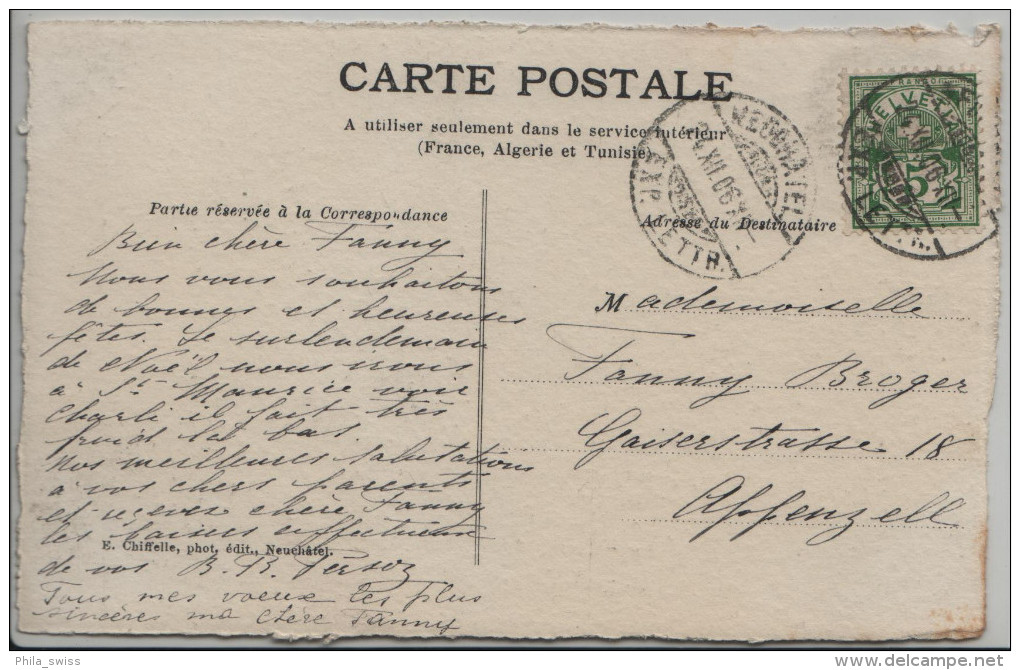 CARTE POSTALE
A utiliser seulement dans le service intérieur
(France, Algerie et Tunisie)
NEUCHATEL
24.XII.06
EXP. LETTR.
HELVETIA
5
Partie réservée à la Correspondance
Adresse du Destinataire
Bien chère Fanny
Nous vous souhaitons
de bonnes et heureuses
fêtes. Le surlendemain
de Noël nous irons
à St Maurice voir
Charli il fait très
froid là bas.
Nos meilleures salutations
à vos chers parents
et recevez chère Fanny
les baisers affectueux
E. Chiffelle, phot. édit., Neuchâtel.
de vos B. R. Persoz
Tous mes voeux les plus
sincères ma chère Fanny
Mademoiselle
Fanny Broger
Gaiserstrasse 18
Appenzell
Phila_swiss
delcampe.net